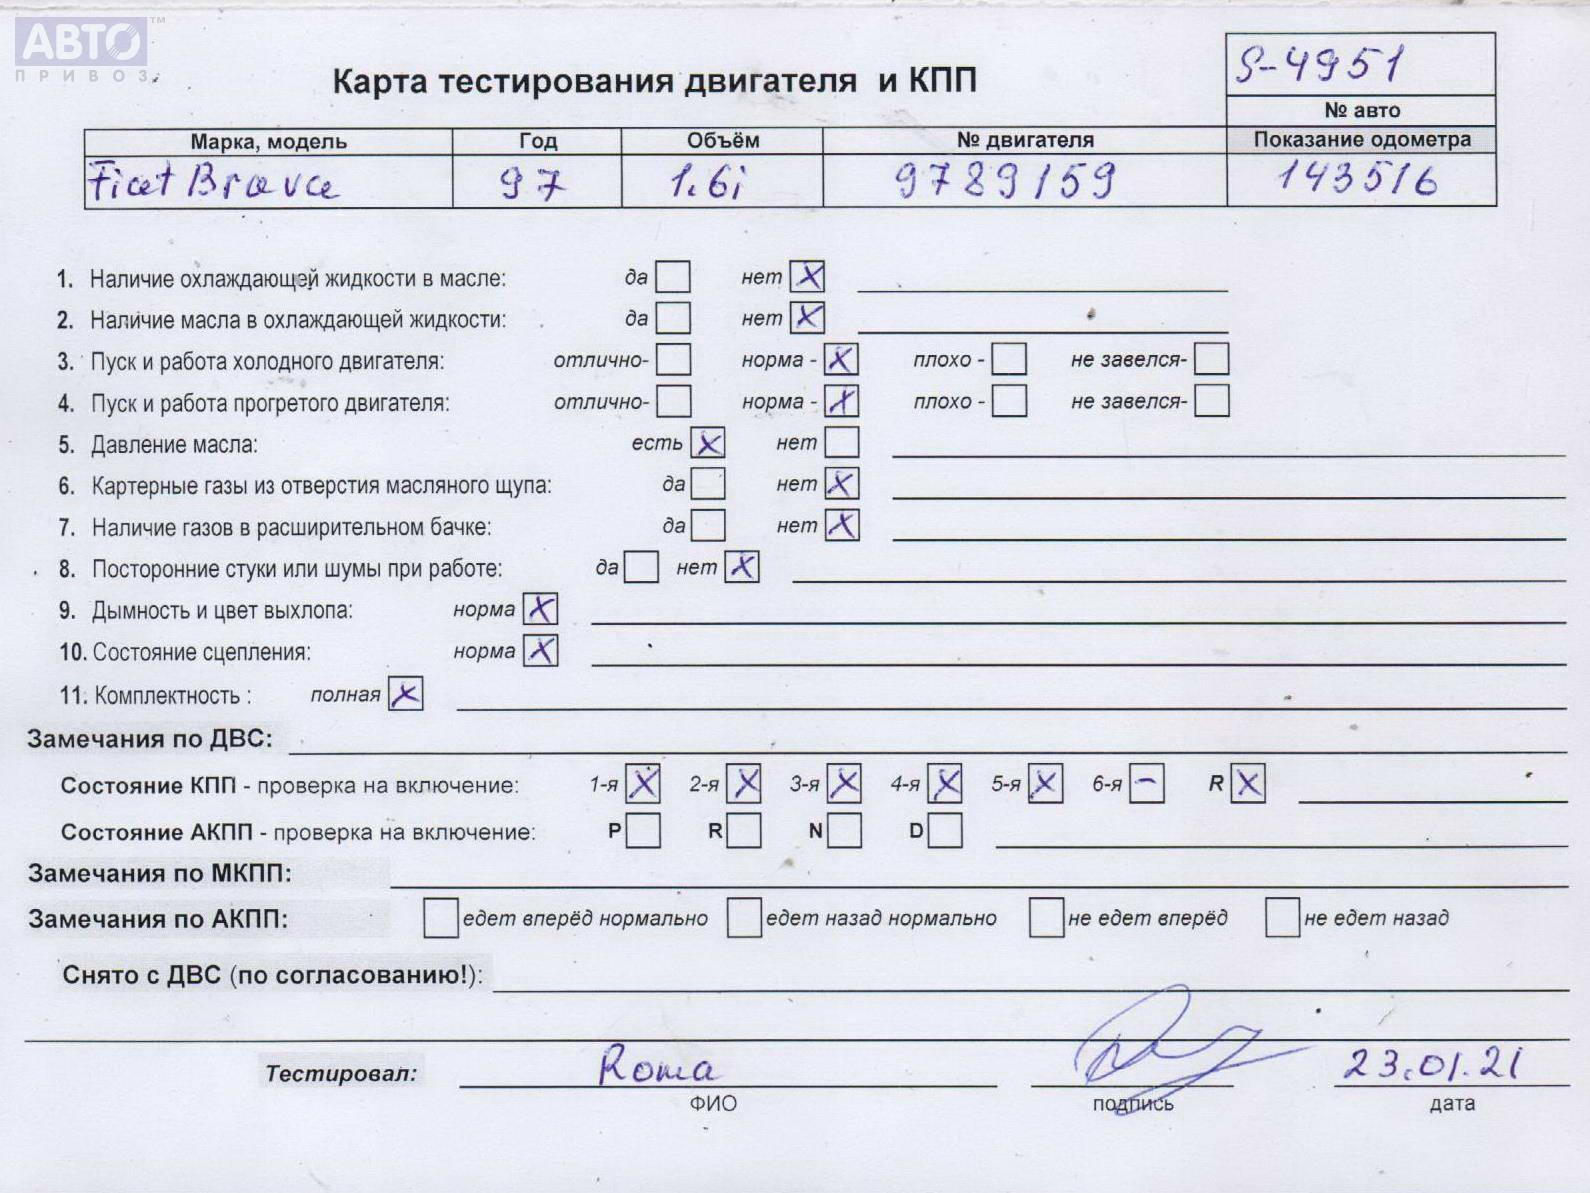 АВТО™
ПРИВОЗ
S-4951
Карта тестирования двигателя и КПП
№ авто
Марка, модель Год Объём № двигателя Показание одометра
Fiat Brava 97 1.6i 9789159 143516
1. Наличие охлаждающей жидкости в масле: да нет X
2. Наличие масла в охлаждающей жидкости: да нет X
3. Пуск и работа холодного двигателя: отлично- норма - X плохо - не завелся-
4. Пуск и работа прогретого двигателя: отлично- норма - X плохо - не завелся-
5. Давление масла: есть X нет
6. Картерные газы из отверстия масляного щупа: да нет X
7. Наличие газов в расширительном бачке: да нет X
8. Посторонние стуки или шумы при работе: да нет X
9. Дымность и цвет выхлопа: норма X
10. Состояние сцепления: норма X
11. Комплектность : полная X
Замечания по ДВС:
Состояние КПП - проверка на включение: 1-я X 2-я X 3-я X 4-я X 5-я X 6-я – R X
Состояние АКПП - проверка на включение: P R N D
Замечания по МКПП:
Замечания по АКПП: едет вперёд нормально едет назад нормально не едет вперёд не едет назад
Снято с ДВС (по согласованию!):
Тестировал: Roma 23.01.21
ФИО подпись дата